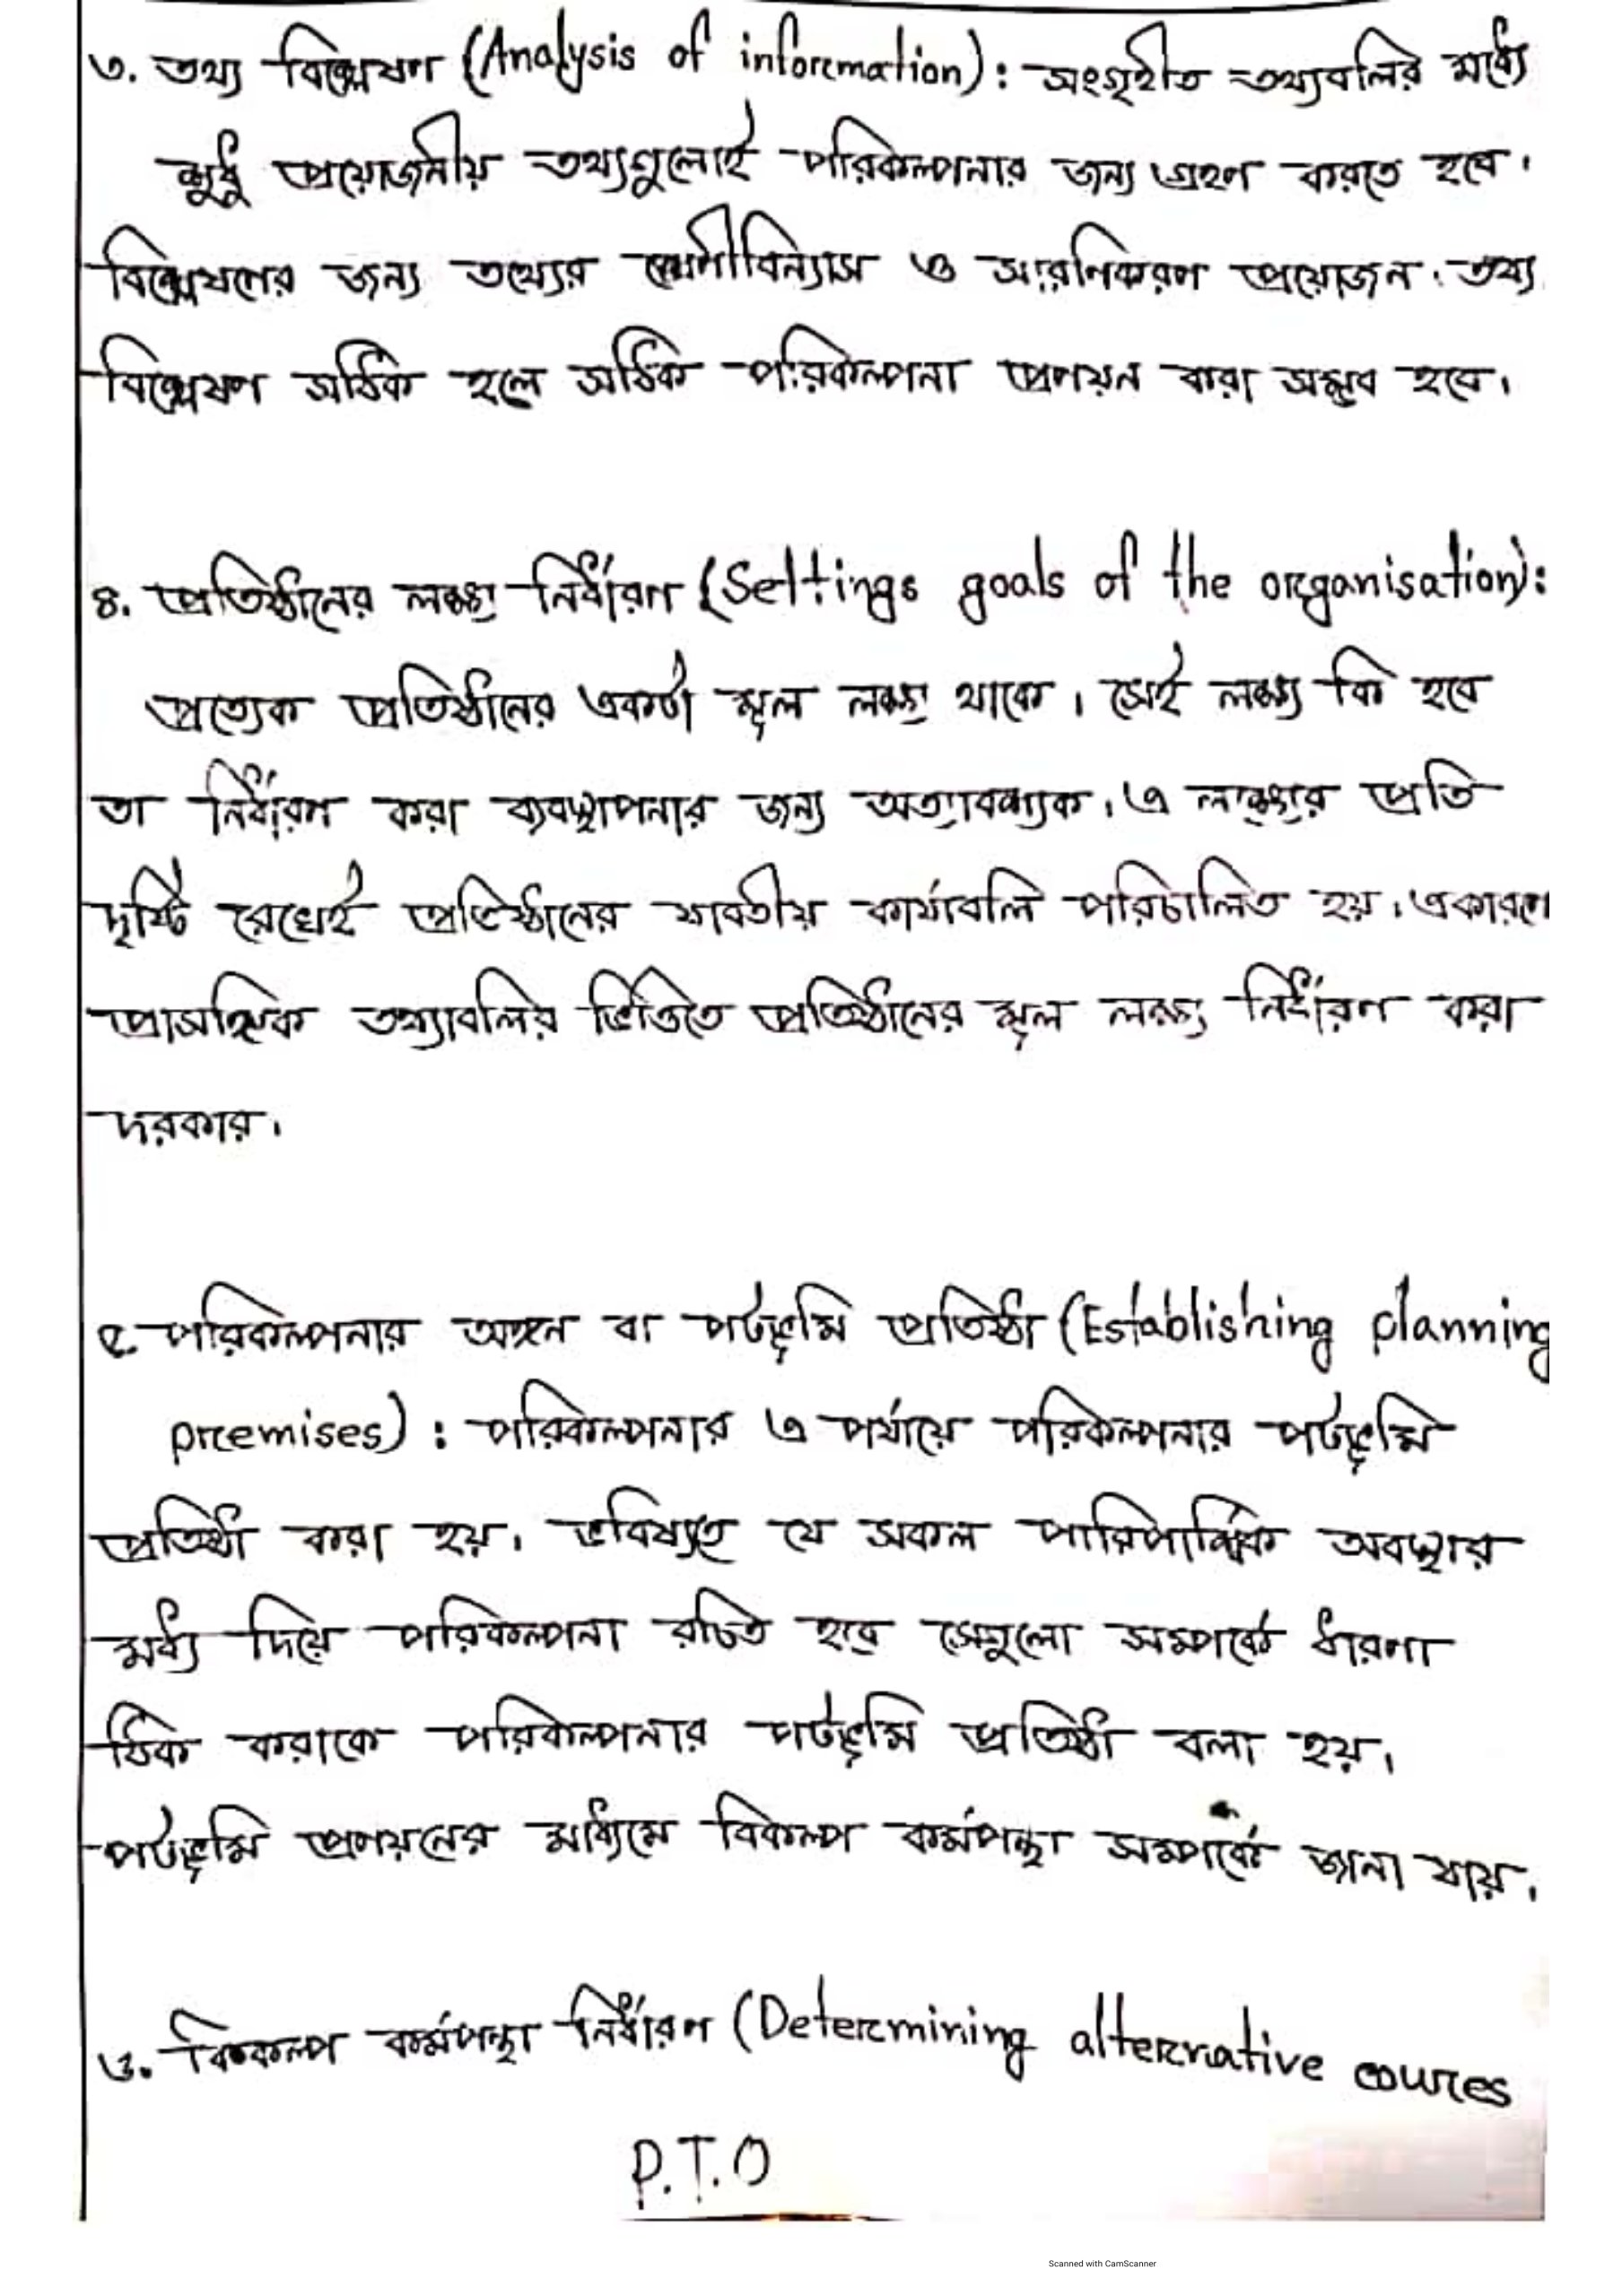 ৩. তথ্য বিশ্লেষণ (Analysis of information): সংগৃহীত তথ্যবলির মধ্যে
শুধু প্রয়োজনীয় তথ্যগুলোই পরিকল্পনার জন্য গ্রহণ করতে হবে।
বিশ্লেষণের জন্য তথ্যের শ্রেণীবিন্যাস ও সারণিকরণ প্রয়োজন। তথ্য
বিশ্লেষণ সঠিক হলে সঠিক পরিকল্পনা প্রণয়ন করা সম্ভব হবে।
৪. প্রতিষ্ঠানের লক্ষ্য নির্ধারণ (Settings goals of the organisation):
প্রত্যেক প্রতিষ্ঠানের একটা মূল লক্ষ্য থাকে। সেই লক্ষ্য কি হবে
তা নির্ধারণ করা ব্যবস্থাপনার জন্য অত্যাবশ্যক। এ লক্ষ্যের প্রতি
দৃষ্টি রেখেই প্রতিষ্ঠানের যাবতীয় কার্যাবলি পরিচালিত হয়। একারণে
প্রাসঙ্গিক তথ্যাবলির ভিত্তিতে প্রতিষ্ঠানের মূল লক্ষ্য নির্ধারণ করা
দরকার।
৫. পরিকল্পনার অঙ্গন বা পটভূমি প্রতিষ্ঠা (Establishing planning
premises) : পরিকল্পনার এ পর্যায়ে পরিকল্পনার পটভূমি
প্রতিষ্ঠা করা হয়। ভবিষ্যতে যে সকল পারিপার্শ্বিক অবস্থার
মধ্য দিয়ে পরিকল্পনা রচিত হবে সেগুলো সম্পর্কে ধারণা
ঠিক করাকে পরিকল্পনার পটভূমি প্রতিষ্ঠা বলা হয়।
পটভূমি প্রণয়নের মাধ্যমে বিকল্প কর্মপন্থা সম্পর্কে জানা যায়।
৬. বিকল্প কর্মপন্থা নির্ধারণ (Determining alternative cources
P.T.O
Scanned with CamScanner